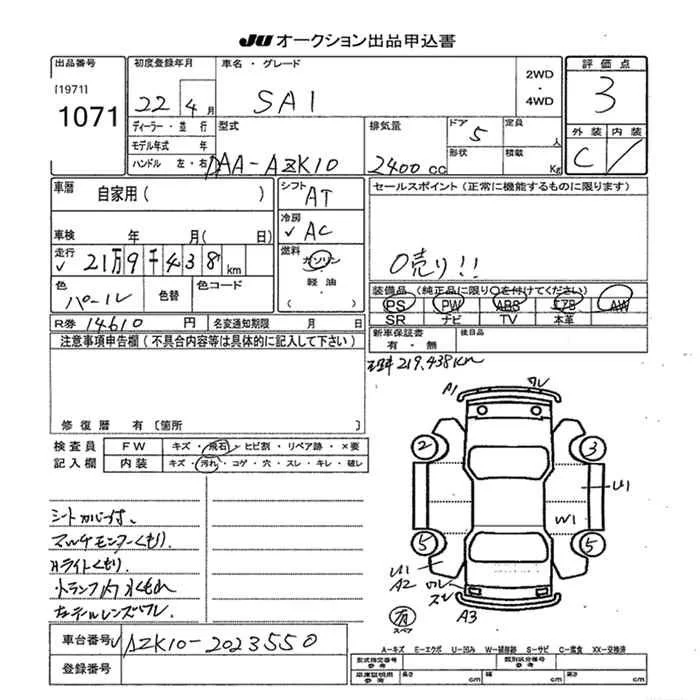 JU オークション出品申込書
出品番号
[1971]
1071
初度登録年月
22 4月
車名・グレード
SAI
2WD
・
4WD
評価点
3
外装 内装
C
ディーラー・並行
モデル年式 年
ハンドル 左・右
型式
DAA-AZK10
排気量
2400cc
ドア 5
形状
定員 人
積載 Kg
車歴 自家用( )
車検 年 月( 日)
走行 21万9千438km
色 パール
色替
色コード
シフト
AT
冷房
AC
燃料
ガソリン
・
軽油
( )
セールスポイント(正常に機能するものに限ります)
0売り!!
装備品(純正品に限り○を付けてください)
PS PW ABS エアB AW
SR ナビ TV 本革
R券 14610 円 名変通知期限 月 日
新車保証書
有・無
後日品
注意事項申告欄(不具合内容等は具体的に記入して下さい)
219,438km
修復歴 有〔箇所 〕
検査員
記入欄
FW キズ・飛石・ヒビ割・リペア跡・×要
内装 キズ・汚れ・コゲ・穴・スレ・キレ・破レ
シートカバー付、
マルチモニターくもり、
Hライトくもり、
トランク内水もれ
左テールレンズワレ
A1 ワレ
2 3
U1
W1
5 5
U1
A2 ワレ
ズレ
A3
有
スペア
車台番号 AZK10-2023550
登録番号
A-キズ E-エクボ U-凹み W-補修跡 S-サビ C-腐食 XX-交換済
型式指定番号
参考
類別区分番号
参考
車庫証明用
参考
長さ cm 幅 cm 高さ cm